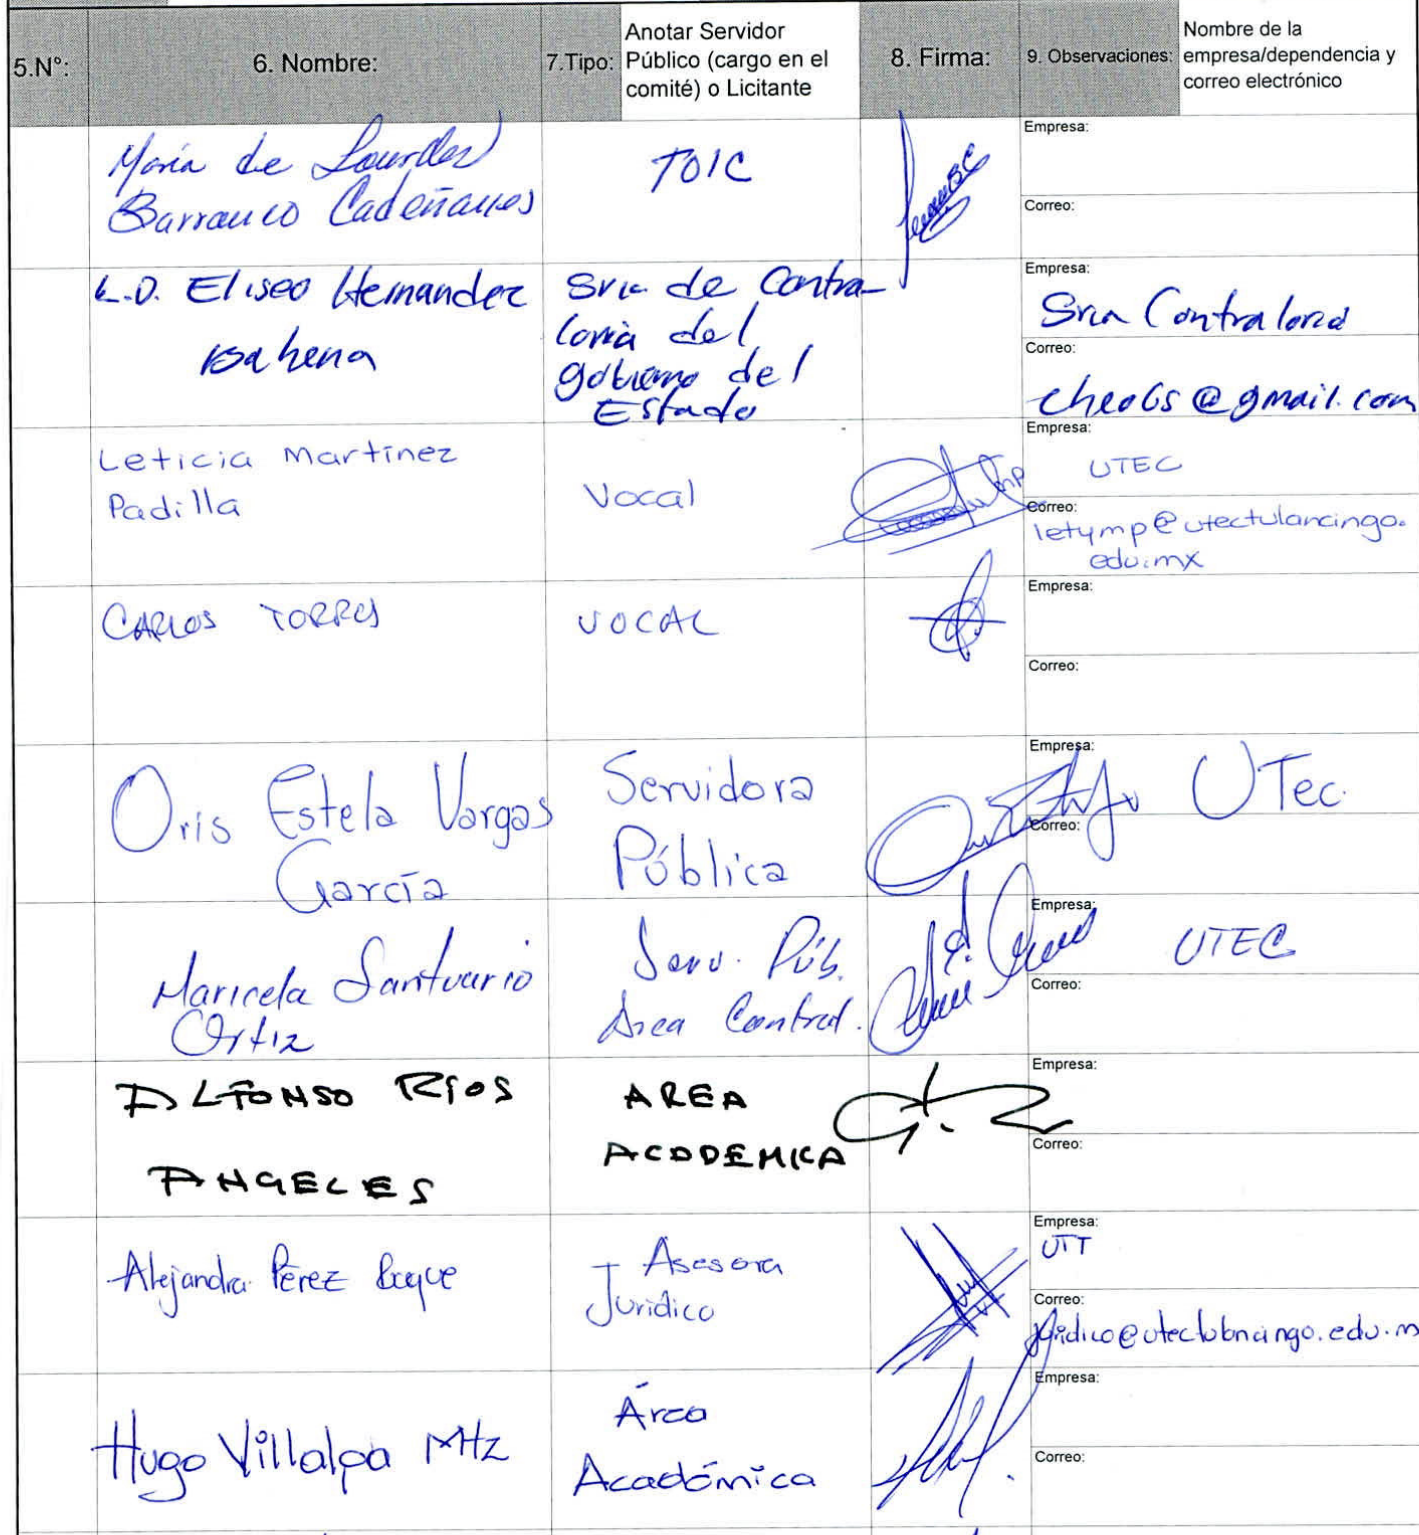 5.N°:
6. Nombre:
7.Tipo:
Anotar Servidor
Público (cargo en el
comité) o Licitante
8. Firma:
9. Observaciones:
Nombre de la
empresa/dependencia y
correo electrónico
María de Lourdes
Barranco Cadeñanes
TOIC
Empresa:
Correo:
L.D. Eliseo Hernandez
Bahena
Sria de Contra-
loria del
gobierno del
Estado
Empresa:
Sria Contraloria
Correo:
@gmail.com
Leticia Martínez
Padilla
Vocal
Empresa:
UTEC
Correo:
letymp@utectulancingo.
edu.mx
CARLOS TORRES
VOCAL
Empresa:
Correo:
Oris Estela Vargas
García
Servidora
Pública
Empresa:
UTec.
Correo:
Maricela Santuario
Ortiz
Serv. Púb.
Area Contral.
Empresa:
UTEC
Correo:
ALFONSO RÍOS
ANGELES
AREA
ACADEMICA
Empresa:
Correo:
Alejandra Pérez Luque
Asesora
Jurídico
Empresa:
UTT
Correo:
Hugo Villalpa MHz
Área
Académica
Empresa:
Correo: